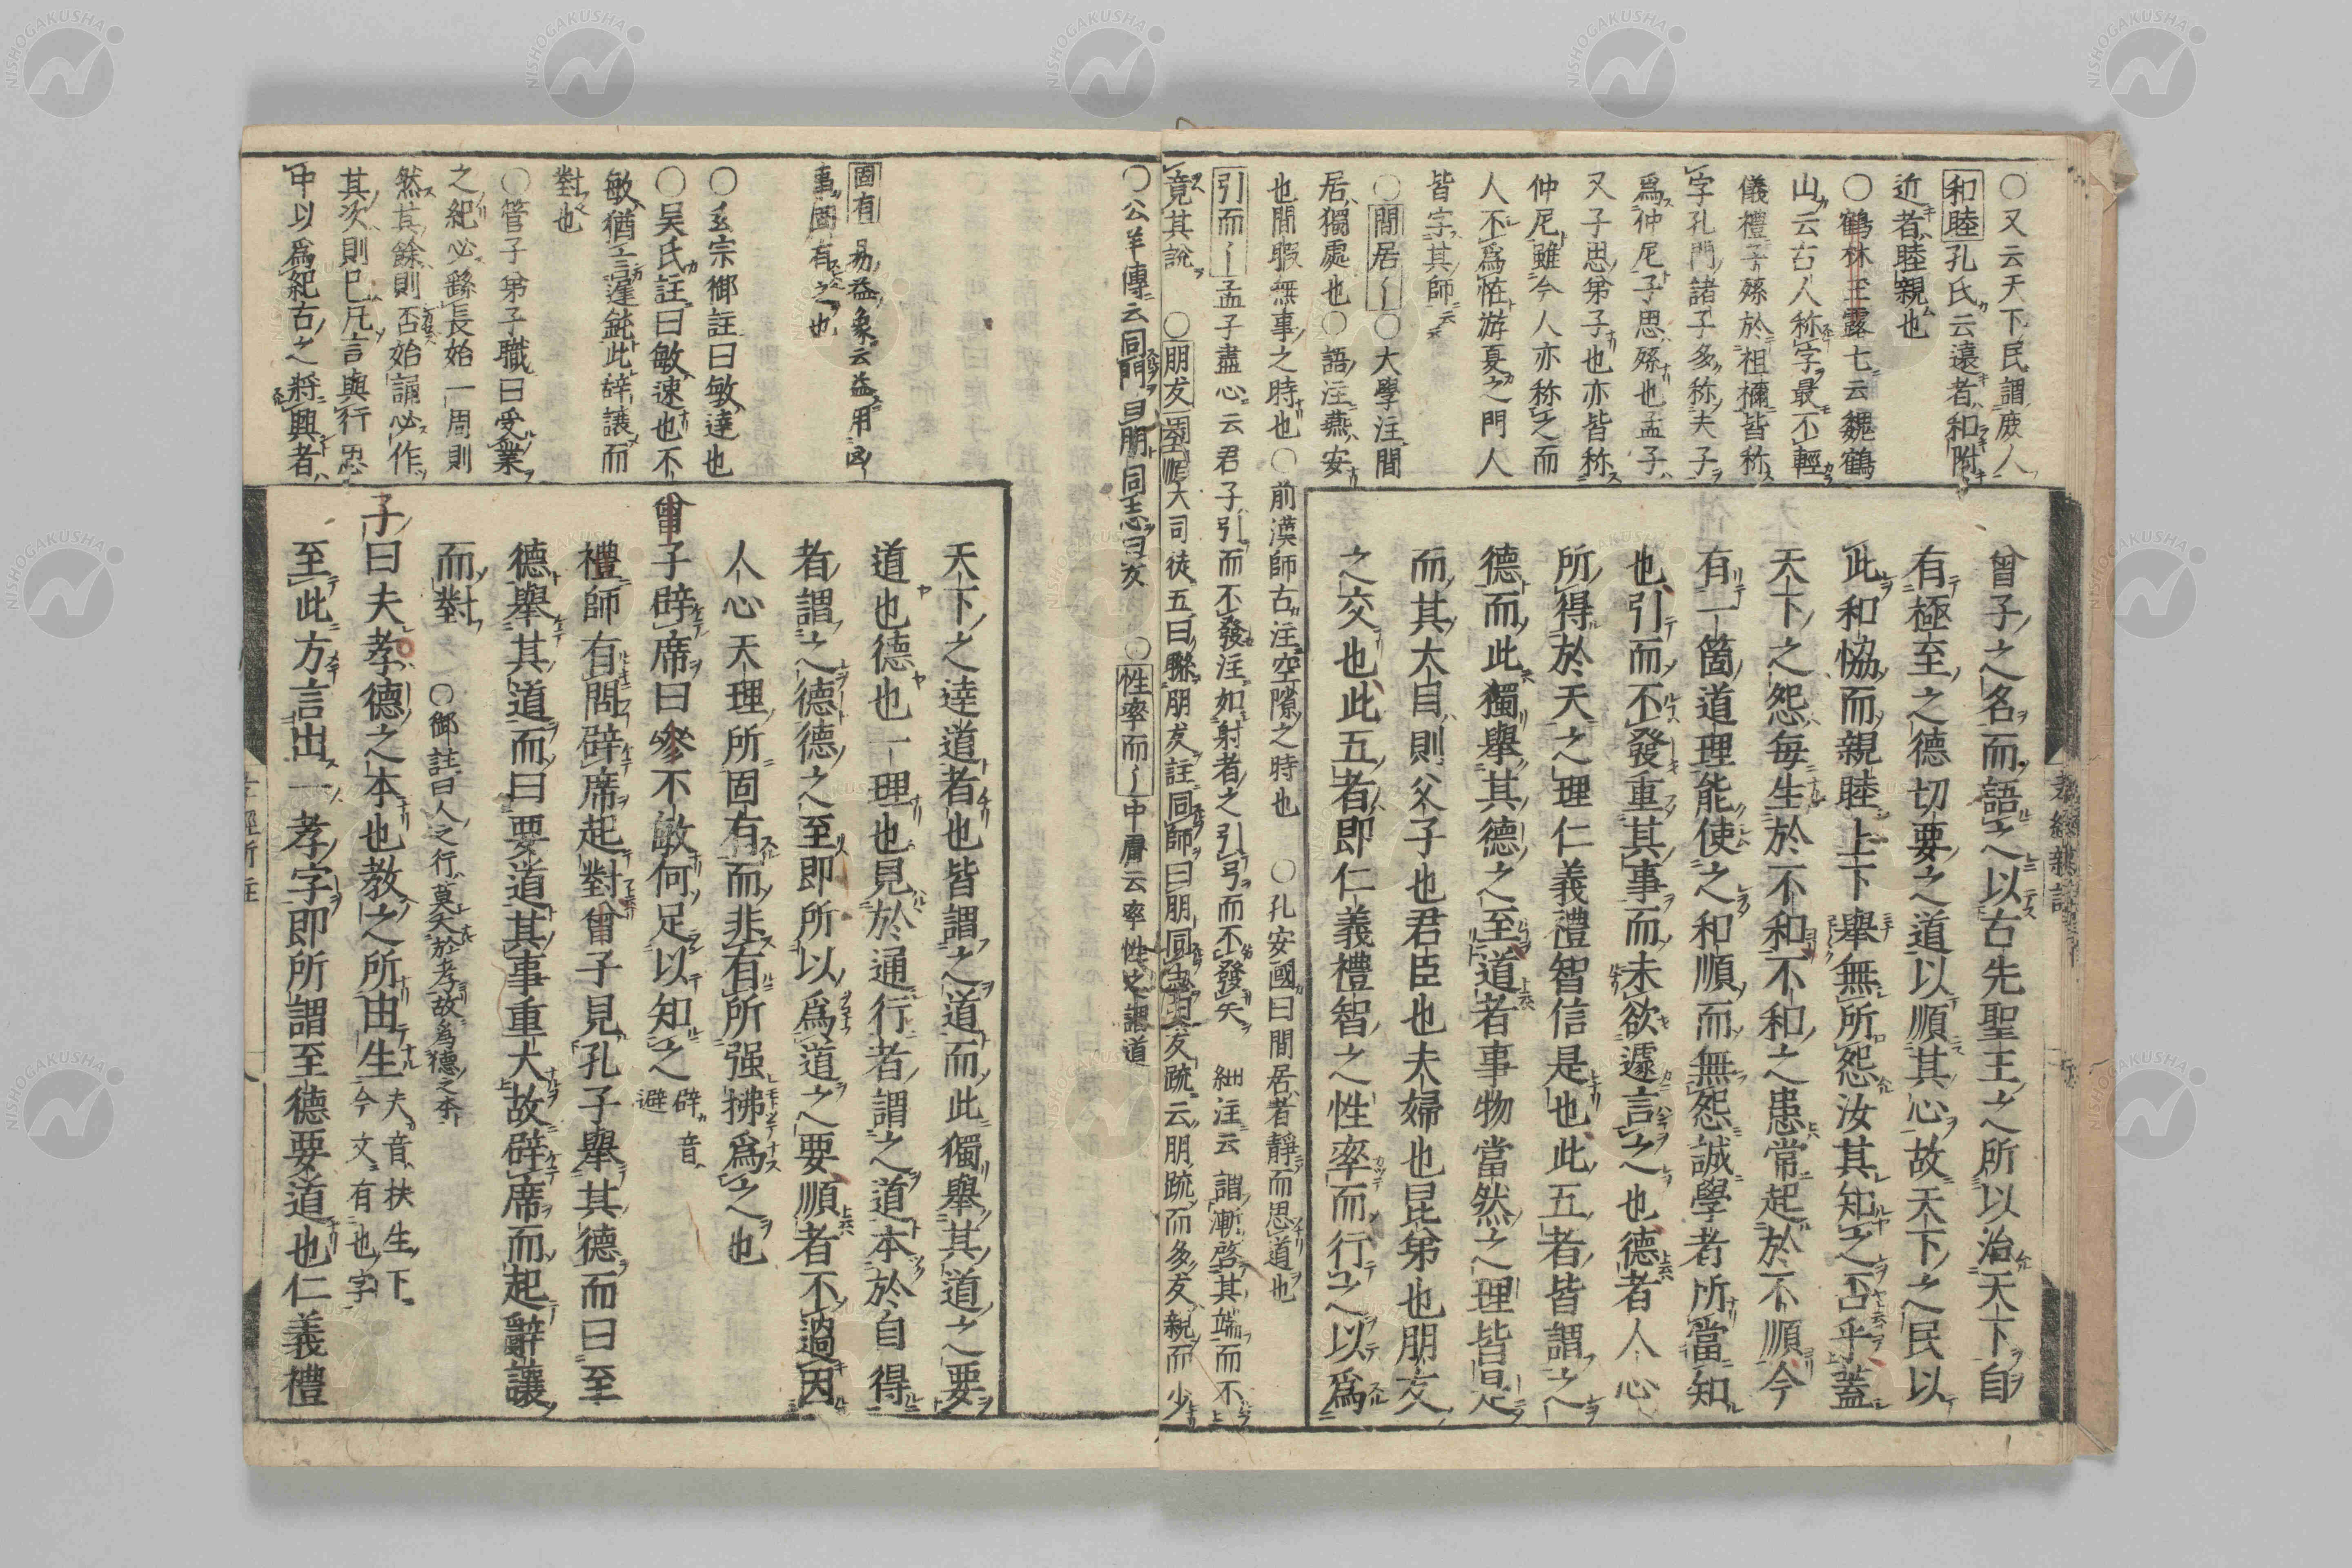 ○又云天下民謂庶人
和睦孔氏云遠者和附
近者睦親也
○鶴林玉露七云魏鶴
山云古人称字最不輕
儀禮子孫於祖禰皆称
字孔門諸子多称夫子
爲仲尼子思孫也孟子
又子思弟子也亦皆称
仲尼雖今人亦称之而
人不爲恠游夏之門人
皆字其師云云
○間居〡○大學注間
居獨處也○語注燕安
也間暇無事之時也○前漢師古注空隙之時也 ○孔安國曰間居者靜而思道也
引而〡孟子盡心云君子引而不發注如射者之引弓而不發矢 細注云謂漸啓其端而不
竟其說 ○朋友周禮大司徒五曰聯朋友註同師曰朋同志曰友疏云朋疏而多友親而少
曾子之名而語之以古先聖王之所以治天下自
有極至之德切要之道以順其心故天下之民以
此和恊而親睦上下舉無所怨汝其知之否乎蓋
天下之怨每生於不和不和之患常起於不順今
有一箇道理能使之和順而無怨誠學者所當知
也引而不發重其事而未欲遽言之也德者人心
所得於天之理仁義禮智信是也此五者皆謂之
德而此獨舉其德之至道者事物當然之理皆是
而其大目則父子也君臣也夫婦也昆弟也朋友
之交也此五者即仁義禮智之性率而行之以爲
○公羊傳云同門曰朋同志曰友 ○性率而〡中庸云率性之謂道
固有 易益象云益用凶
事固有之也
○玄宗御註曰敏達也
○吴氏註曰敏速也不
敏猶言遲鈍此辞讓而
對也
○管子弟子職曰受業
之紀必繇長始一周則
然其餘則否始誦必作
其次則已凡言與行思
中以爲紀古之將興者
天下之達道者也皆謂之道而此獨舉其道之要
道也德也一理也見於通行者謂之道本於自得
者謂之德德之至即所以爲道之要順者不過因
人心天理所固有而非有所强拂爲之也
曾子辟席曰參不敏何足以知之辟音避
禮師有問辟席起對曾子見孔子舉其德而曰至
德舉其道而曰要道其事重大故辟席而起辭讓
而對 ○御註曰人之行莫大於孝故爲德之本
子曰夫孝德之本也教之所由生夫音扶生下今文有也字
至此方言出一孝字即所謂至德要道也仁義禮